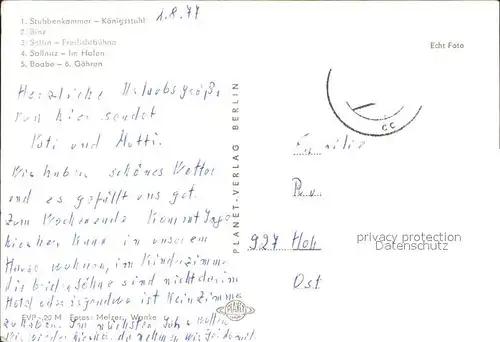 1. Stubbenkammer – Königsstuhl
2. Binz
3. Sellin – Freilichtbühne
4. Saßnitz – Im Hafen
5. Baabe – 6. Göhren
1.8.77
Echt Foto
Herzliche Urlaubsgrüße
von hier sendet
Vati und Mutti.
Wir haben schönes Wetter
und es gefällt uns gut.
Zum Wochenende kommt
hierher kann in unserem
Hause wohnen, im Kinderzimmer
die beiden Söhne sind nicht da, im
Hotel oder irgendwo ist kein Zimmer
zu haben. Im nächsten Jahr wollen
wir wieder
PLANET-VERLAG BERLIN
Familie
927 Hoh
Ost
privacy protection
Datenschutz
EVP -,20 M Fotos: Melzer, Wanke
PLANET